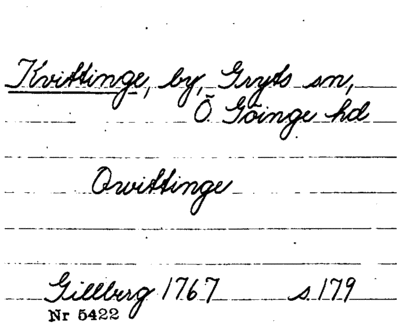 Kvittinge, by, Gryts sn,
Ö Göinge hd
Qwittinge
Gillberg 1767 s 179
Nr 5422